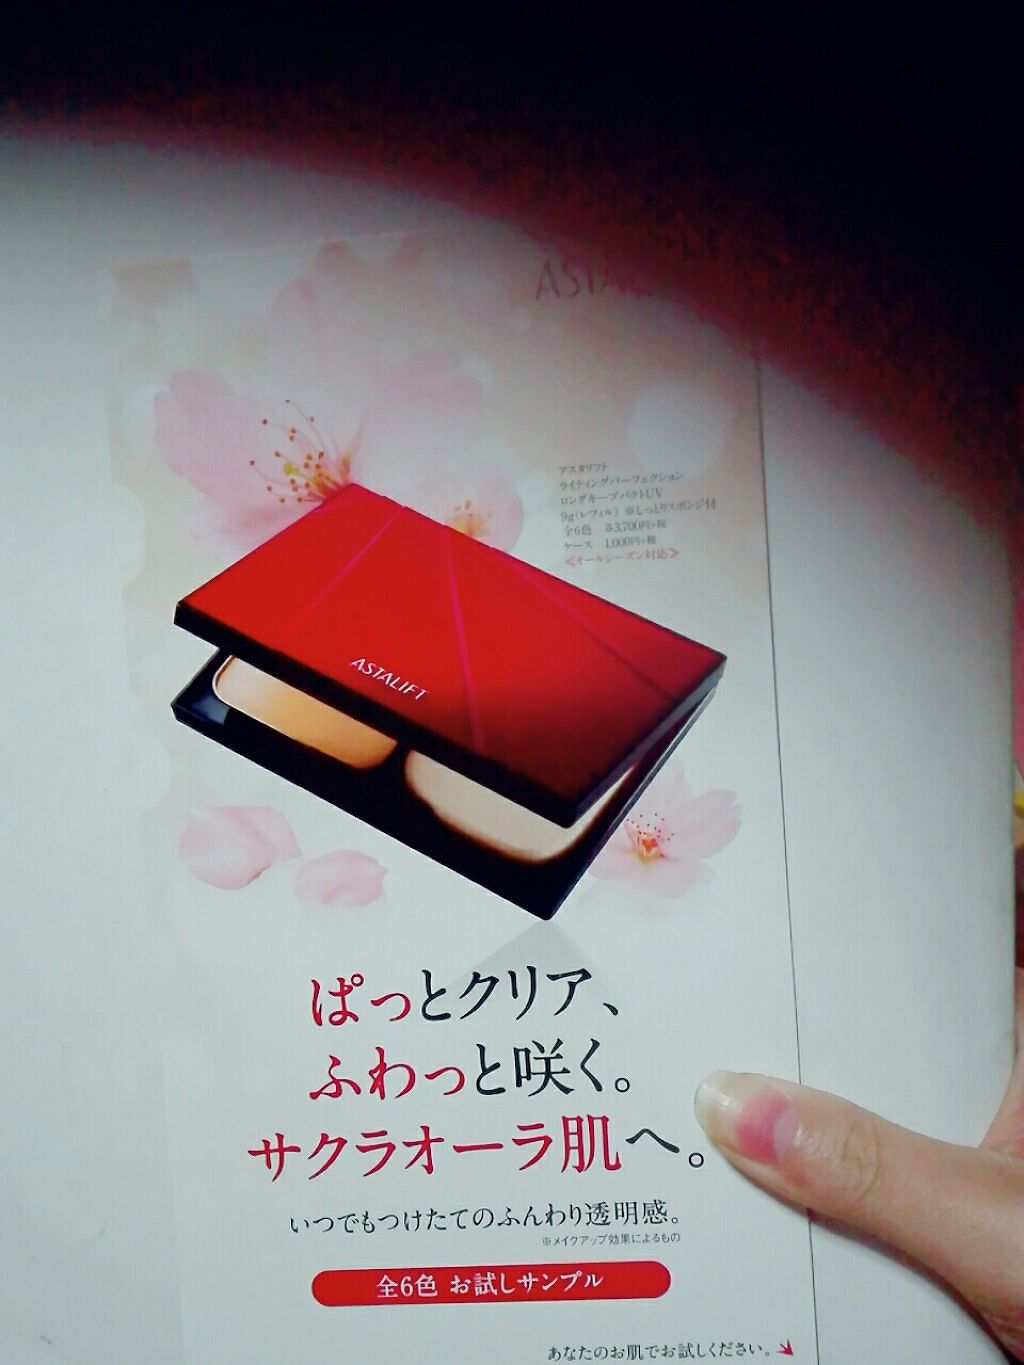 ASTA
アスタリフト
ライティングパーフェクション
ロングキープパクトUV
9g(レフィル) ※しっとりスポンジ付
全6色 各3,700円+税
ケース 1,000円+税
<オールシーズン対応>
ASTALIFT
ぱっとクリア、
ふわっと咲く。
サクラオーラ肌へ。
いつでもつけたてのふんわり透明感。
※メイクアップ効果によるもの
全6色 お試しサンプル
あなたのお肌でお試しください。